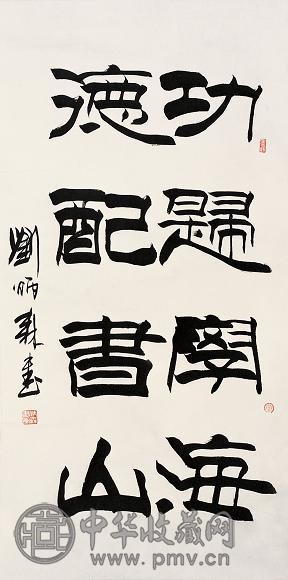 功歸學海
德配書山
劉炳森書
中华收藏网
www.pmv.cn